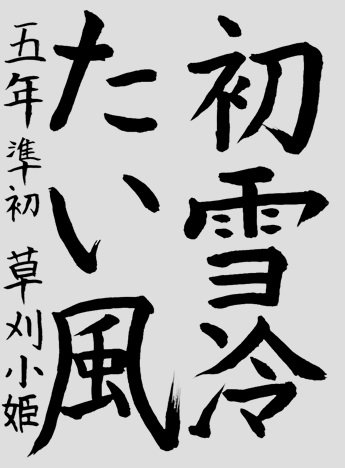 初雪冷
たい風
五年 準初 草刈小姫